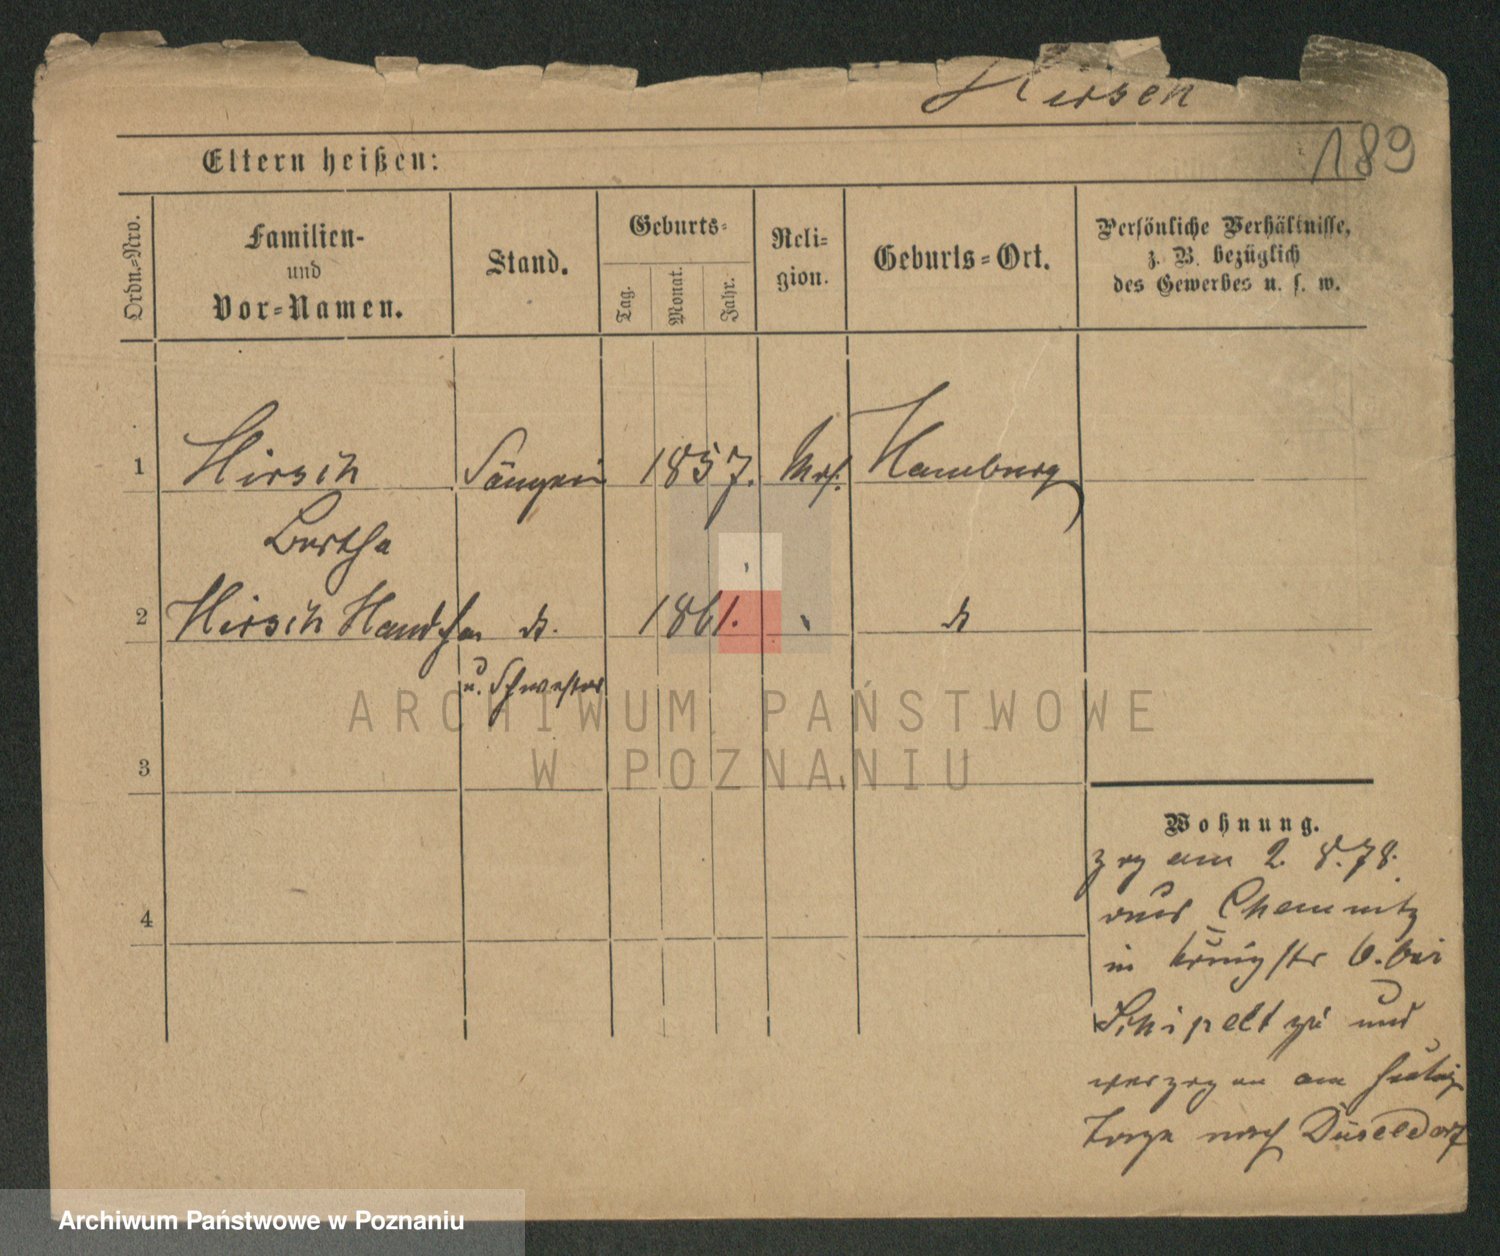 Hirsch
189
Eltern heißen:
Ordn.-Nro.
Familien-
und
Vor-Namen.
Stand.
Geburts-
Tag.
Monat.
Jahr.
Reli-
gion.
Geburts-Ort.
Persönliche Verhältnisse,
z. B. bezüglich
des Gewerbes u. s. w.
1 Hirsch Sängerin 1857. Mos. Hamburg
Bertha
2 Hirsch 1861.
u. Schwester
3
4
Wohnung.
zog am 2. 8. 78.
aus Chemnitz
in Königstr 6. bei
zu und
verzogen am heutig
Tage nach Düseldorf
ARCHIWUM PAŃSTWOWE
W POZNANIU
Archiwum Państwowe w Poznaniu